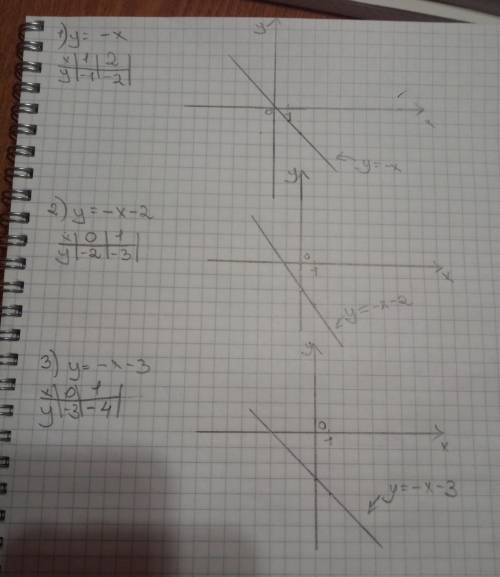 1) y = -x
x | 1 | 2
y | -1 | -2
y
0 1
x
y = -x
2) y = -x-2
x | 0 | 1
y | -2 | -3
y
0
1
x
y = -x-2
3) y = -x-3
x | 0 | 1
y | -3 | -4
y
0
1
x
y = -x-3